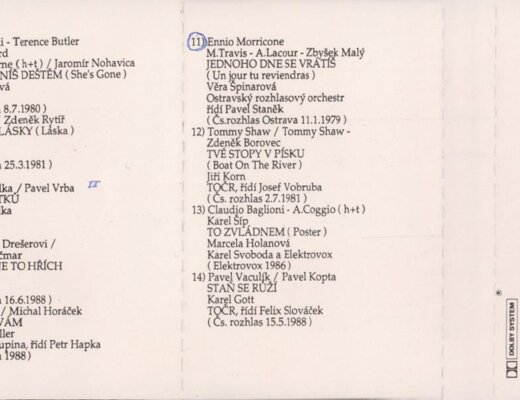 i - Terence Butler
rd
rne ( h+t ) / Jaromír Nohavica
NÍŠ DEŠTĚM ( She's Gone )
vá
n 8.7.1980 )
/ Zdeněk Rytíř
LÁSKY ( Láska )
n 25.3.1981 )
lka / Pavel Vrba
TKŮ
lka
Drešerovi /
čmar
NE TO HŘÍCH
n 16.6.1988 )
/ Michal Horáček
VÁM
ller
upina, řídí Petr Hapka
n 1988 )
11) Ennio Morricone
M.Travis - A.Lacour - Zbyšek Malý
JEDNOHO DNE SE VRÁTÍŠ
( Un jour tu reviendras )
Věra Špinarová
Ostravský rozhlasový orchestr
řídí Pavel Staněk
( Čs.rozhlas Ostrava 11.1.1979 )
12) Tommy Shaw / Tommy Shaw -
Zdeněk Borovec
TVÉ STOPY V PÍSKU
( Boat On The River )
Jiří Korn
TOČR, řídí Josef Vobruba
( Čs. rozhlas 2.7.1981 )
13) Claudjo Baglioni - A.Coggio ( h+t )
Karel Šíp
TO ZVLÁDNEM ( Poster )
Marcela Holanová
Karel Svoboda a Elektrovox
( Elektrovox 1986 )
14) Pavel Vaculík / Pavel Kopta
STAŇ SE RŮŽÍ
Karel Gott
TOČR, řídí Felix Slováček
( Čs. rozhlas 15.5.1988 )
DOLBY SYSTEM